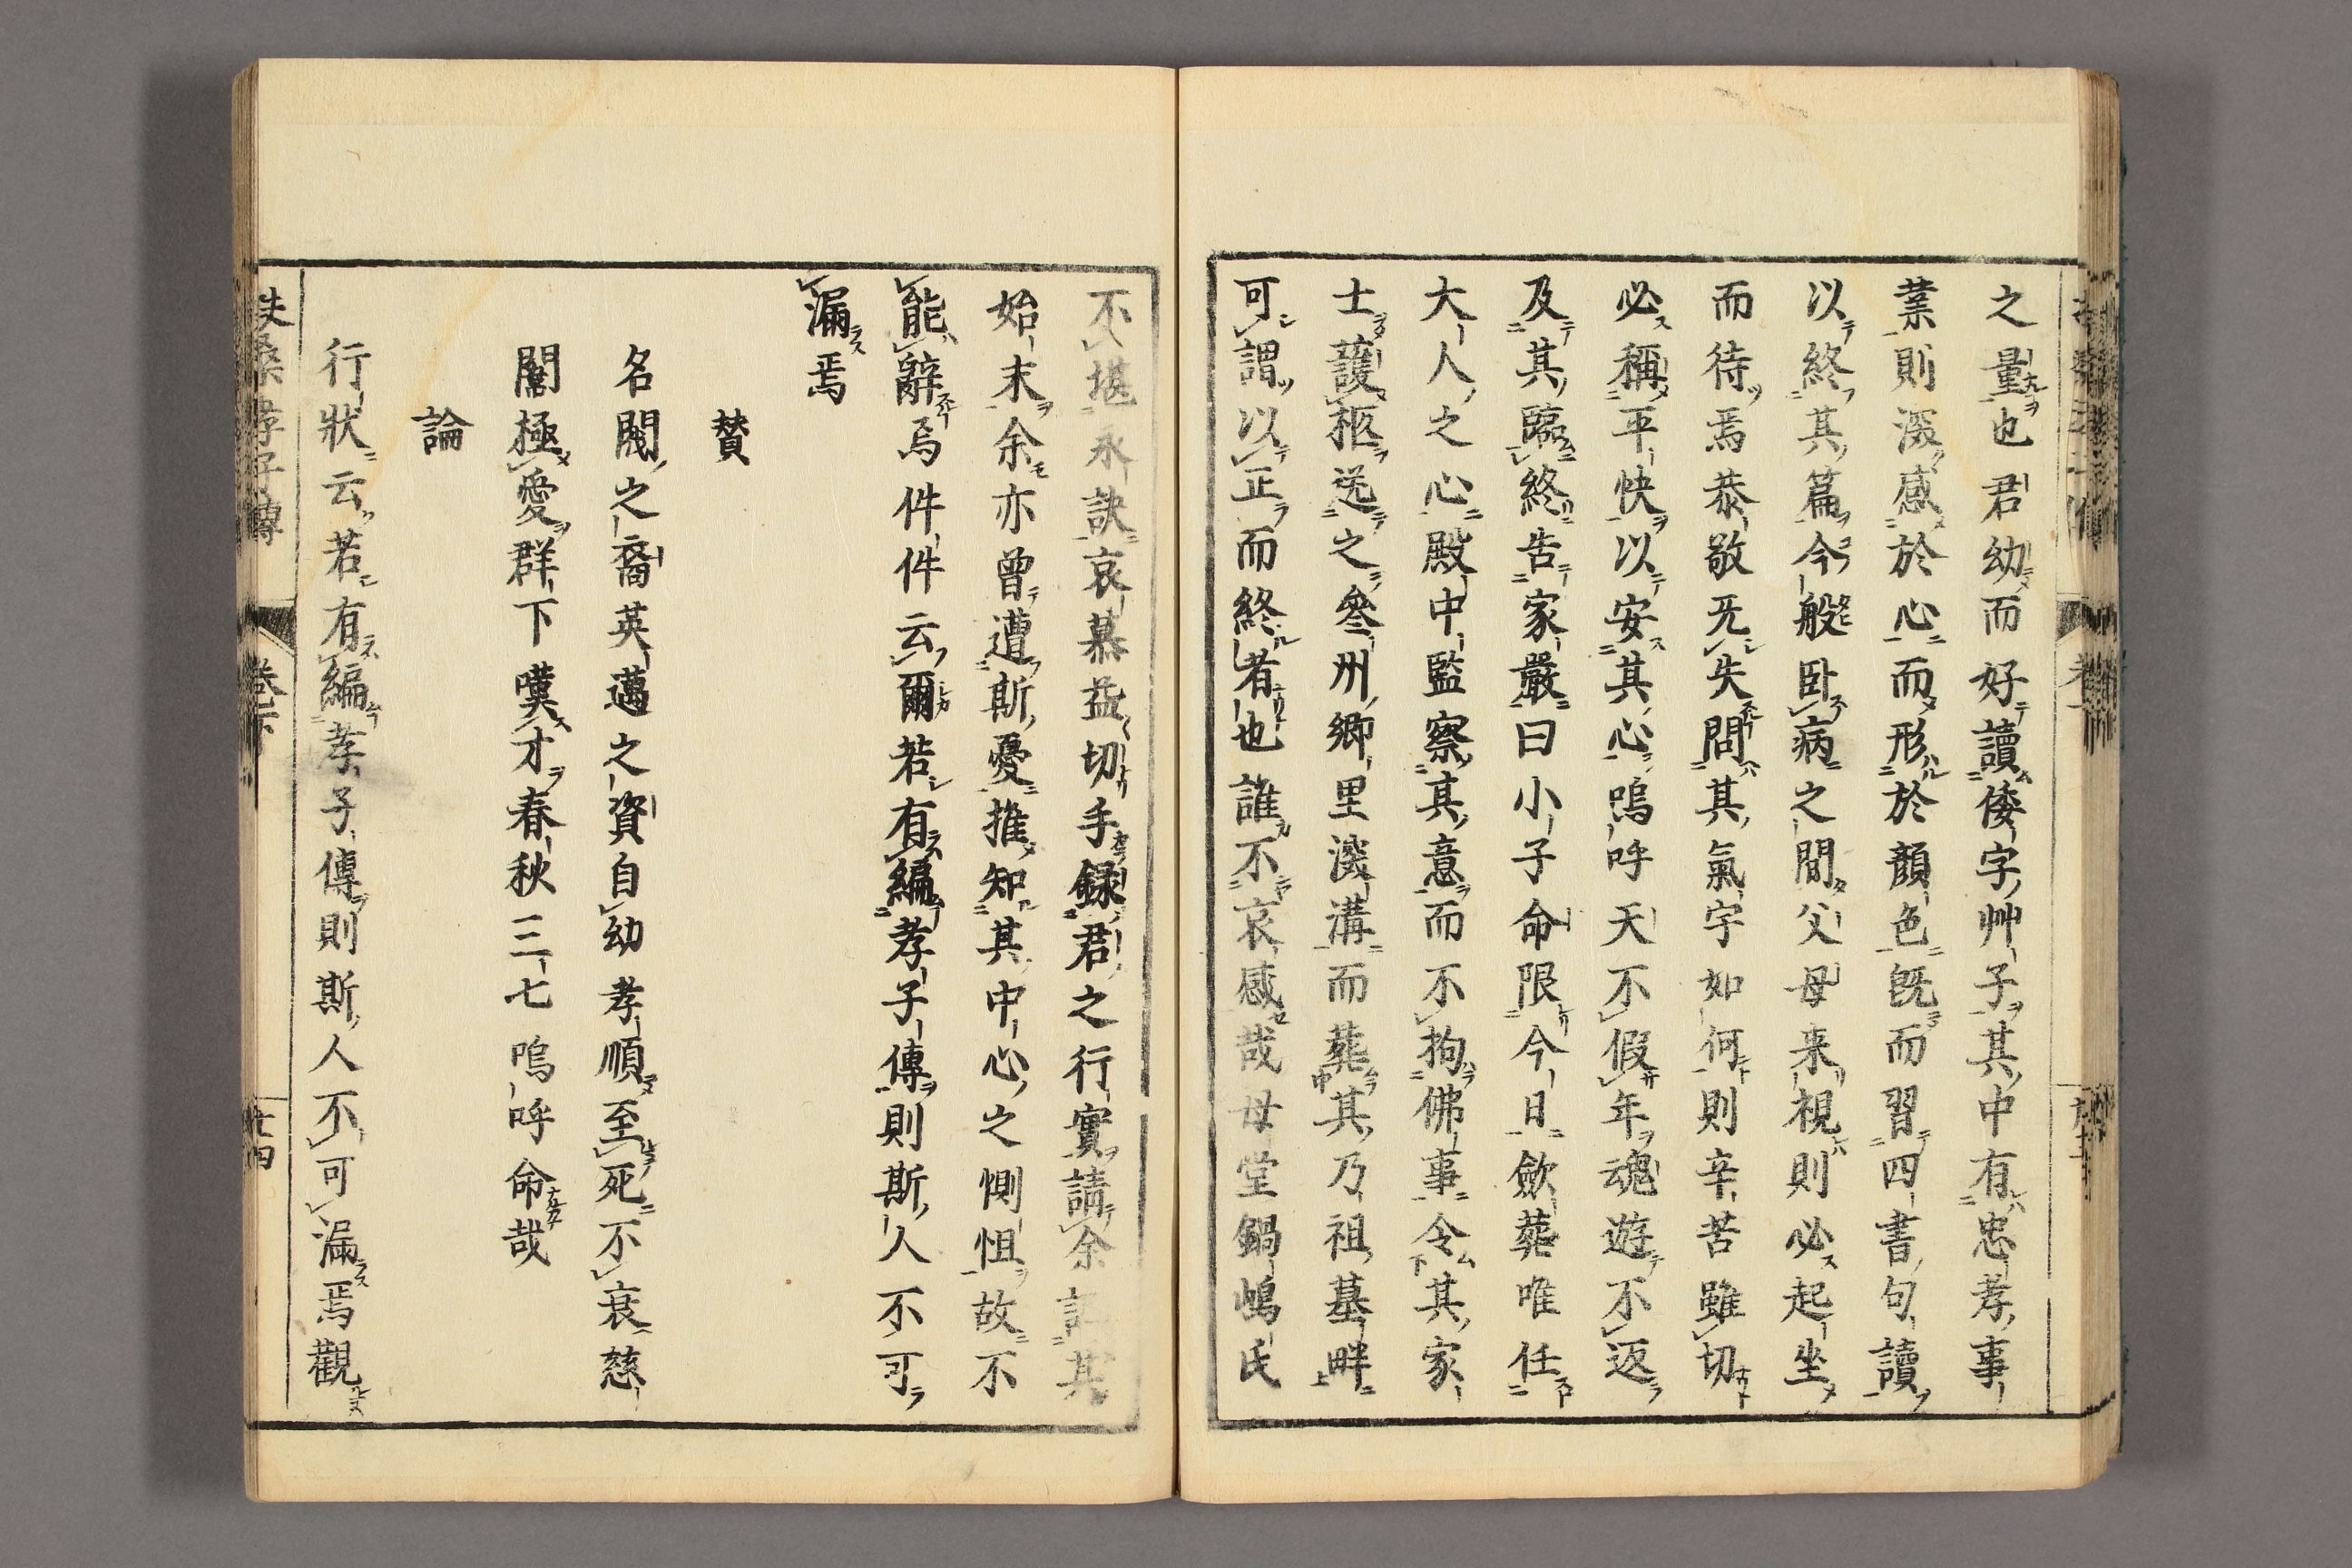 之量也君幼而好讀倭字艸子其中有忠孝事
業則深感於心而形於顏色既而習四書句讀
以終其篇今般卧病之間父母来視則必起坐
而待焉恭敬无失問其氣字如何則辛苦雖切
必稱平快以安其心嗚呼天不假年魂遊不返
及其臨終告家嚴曰小子命限今日歛葬唯任
大人之心殿中監察其意而不拘佛事令其家
士護柩送之參州卿里溪溝而葬其乃祖墓畔
可謂以正而終者也誰不哀感哉母堂鍋嶋氏
不堪永訣哀慕益切手録君之行實請余記其
始末余亦曾遭斯憂推知其中心之惻怛故不
能辭焉件件云爾若有編孝子傳則斯人不可
漏焉
賛
名閥之裔英邁之資自幼孝順至死不衰慈
闈極愛群下嘆才春秋三七嗚呼命哉
論
行狀云若有編孝子傳則斯人不可漏焉觀
扶桑孝子傳　卷下　廿四